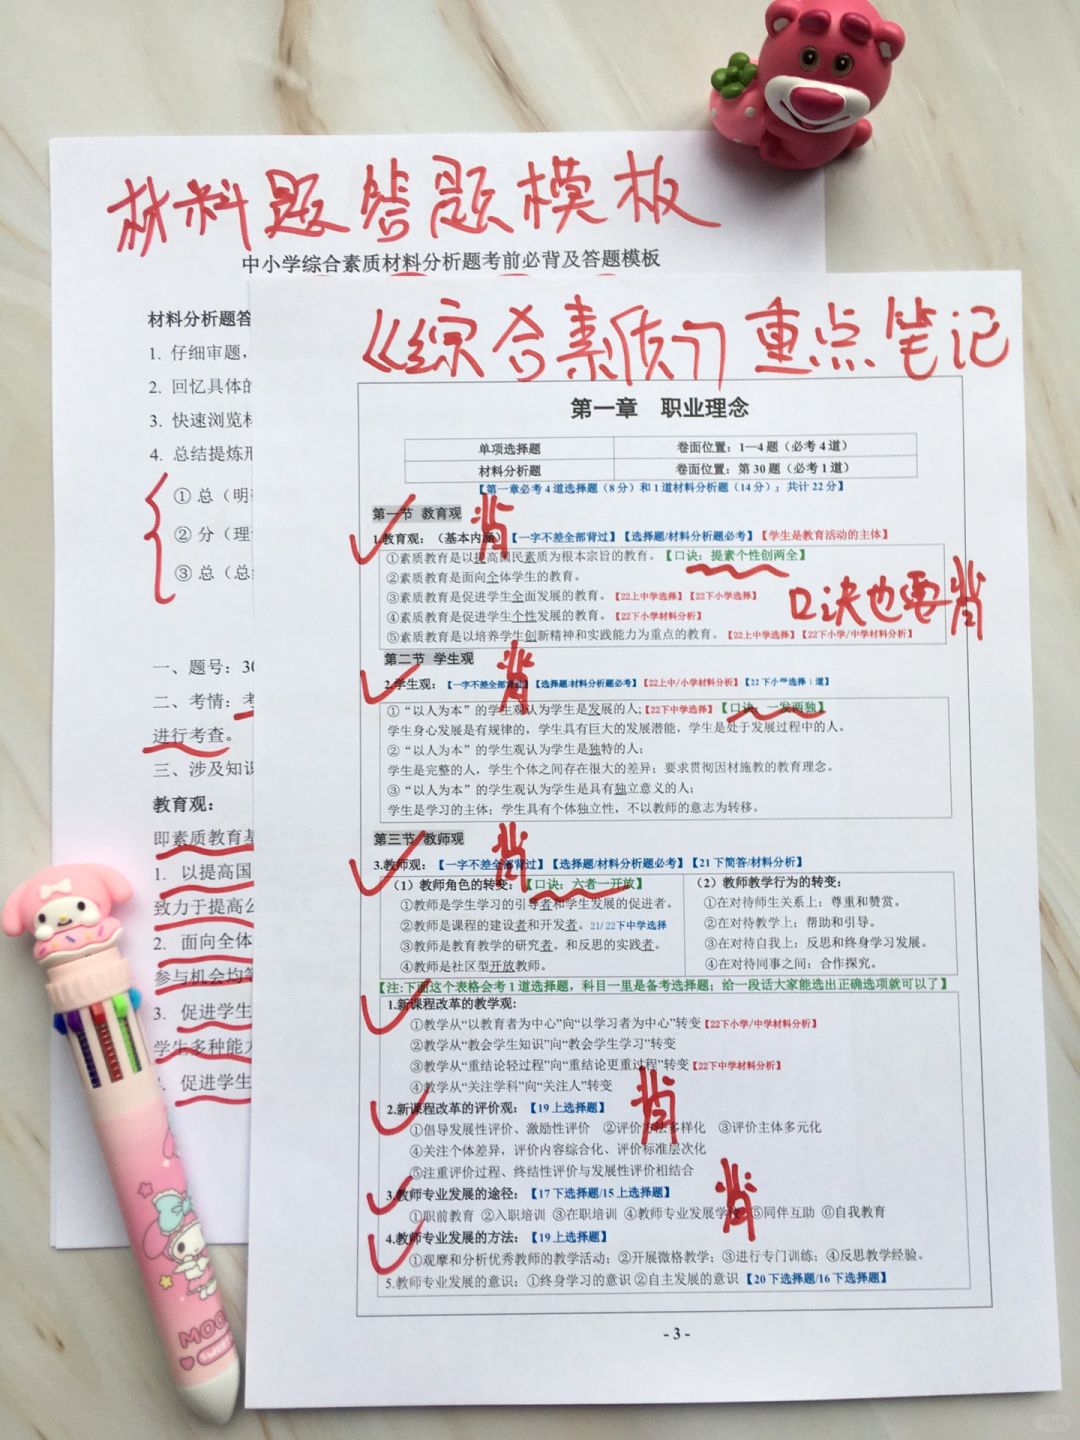 材料题答题模板
中小学综合素质材料分析题考前必背及答题模板
材料分析题答
1. 仔细审题，
2. 回忆具体的
3. 快速浏览材
4. 总结提炼形
① 总（明确
② 分（理
③ 总（总
一、题号：30
二、考情：考
进行考查。
三、涉及知识
教育观：
即素质教育基
1. 以提高国
致力于提高公
2. 面向全体
参与机会均等
3. 促进学生
学生多种能力
促进学生
《综合素质》重点笔记
第一章 职业理念
单项选择题 卷面位置：1—4题（必考 4 道）
材料分析题 卷面位置：第 30 题（必考 1 道）
【第一章必考 4 道选择题（8 分）和 1 道材料分析题（14 分）；共计 22 分】
第一节 教育观 背
1.教育观：（基本内涵）【一字不差全部背过】【选择题/材料分析题必考】【学生是教育活动的主体】
①素质教育是以提高国民素质为根本宗旨的教育。【口诀：提素个性创两全】
②素质教育是面向全体学生的教育。
③素质教育是促进学生全面发展的教育。【22上中学选择】【22下小学选择】
口诀也要背
④素质教育是促进学生个性发展的教育。【22下小学材料分析】
⑤素质教育是以培养学生创新精神和实践能力为重点的教育。【22上中学选择】【22下小学/中学材料分析】
第二节 学生观 背
2.学生观：【一字不差全部背过】【选择题/材料分析题必考】【22上中/小学材料分析】【22 下小学选择 1 道】
①“以人为本”的学生观认为学生是发展的人；【22下中学选择】【口诀：一发两独】
学生身心发展是有规律的，学生具有巨大的发展潜能，学生是处于发展过程中的人。
②“以人为本”的学生观认为学生是独特的人；
学生是完整的人，学生个体之间存在很大的差异；要求贯彻因材施教的教育理念。
③“以人为本”的学生观认为学生是具有独立意义的人；
学生是学习的主体；学生具有个体独立性，不以教师的意志为转移。
第三节 教师观 背
3.教师观：【一字不差全部背过】【选择题/材料分析题必考】【21 下简答/材料分析】
（1）教师角色的转变：【口诀：六者一开放】
①教师是学生学习的引导者和学生发展的促进者。
②教师是课程的建设者和开发者。21/ 22下中学选择
③教师是教育教学的研究者。和反思的实践者。
④教师是社区型开放教师。
（2）教师教学行为的转变：
①在对待师生关系上：尊重和赞赏。
②在对待教学上：帮助和引导。
③在对待自我上：反思和终身学习发展。
④在对待同事之间：合作探究。
【注:下面这个表格会考 1 道选择题，科目一里是备考选择题；给一段话大家能选出正确选项就可以了】
1.新课程改革的教学观:
①教学从“以教育者为中心”向“以学习者为中心”转变【22下小学/中学材料分析】
②教学从“教会学生知识”向“教会学生学习”转变
③教学从“重结论轻过程”向“重结论更重过程”转变【22下中学材料分析】
④教学从“关注学科”向“关注人”转变
2.新课程改革的评价观:【19 上选择题】 背
①倡导发展性评价、激励性评价 ②评价方法多样化 ③评价主体多元化
④关注个体差异，评价内容综合化、评价标准层次化
⑤注重评价过程、终结性评价与发展性评价相结合
3.教师专业发展的途径:【17 下选择题/15 上选择题】 背
①职前教育 ②入职培训 ③在职培训 ④教师专业发展学校 ⑤同伴互助 ⑥自我教育
4.教师专业发展的方法:【19 上选择题】
①观摩和分析优秀教师的教学活动；②开展微格教学；③进行专门训练；④反思教学经验。
5.教师专业发展的意识；①终身学习的意识 ②自主发展的意识 【20 下选择题/16 下选择题】
- 3 -
MOO
SWEET